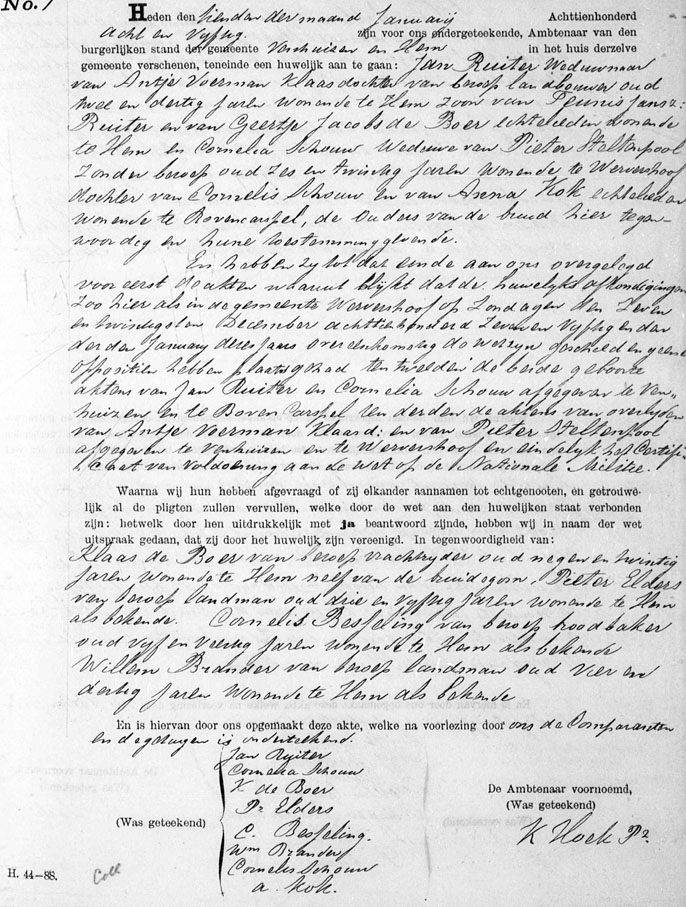 No. 7
Heden den tienden der maand Januarij Achttienhonderd
acht en vijftig. zijn voor ons ondergeteekende, Ambtenaar van den
burgerlijken stand der gemeente Venhuizen en Hem in het huis derzelve
gemeente verschenen, teneinde een huwelijk aan te gaan: Jan Ruiter Weduwnaar
van Antje Voerman Klaasdochter van beroep landbouwer oud
twee en dertig jaren wonende te Hem zoon van Teunis Jansz:
Ruiter en van Geertje Jacobs de Boer echtelieden wonende
te Hem en Cornelia Schouw Weduwe van Pieter Steltenpool
zonder beroep oud zes en twintig jaren wonende te Wervershoof
dochter van Cornelis Schouw en van Anna Kok echtelieden
wonende te Bovencarspel, de ouders van de bruid hier tegen-
woordig en hune toestemming gevende.
En hebben zy tot dat einde aan ons overgelegd
voor eerst de akten waaruit blijkt dat de huwelyks afkondigingen
zoo hier als in de gemeente Wervershoof op Zondagen den zeven
en twintigsten December achttienhonderd zeven en vyftig en den
derden January dezes jaars overeenkomstig de wet zyn geschied en geene
oppositien hebben plaats gehad ten tweeden de beide geboorte
aktens van Jan Ruiter en Cornelia Schouw afgegeven te Ven-
huizen en te Boven Carspel ten derden de aktens van overlyden
van Antje Voerman Klaasd: en van Pieter Steltenpool
afgegeven te Venhuizen en te Wervershoof en eindelyk het Certifi-
caat van voldoening aan de wet op de Nationale Militie.
Waarna wij hun hebben afgevraagd of zij elkander aannamen tot echtgenooten, en getrouwe-
lijk al de pligten zullen vervullen, welke door de wet aan den huwelijken staat verbonden
zijn: hetwelk door hen uitdrukkelijk met ja beantwoord zijnde, hebben wij in naam der wet
uitspraak gedaan, dat zij door het huwelijk zijn vereenigd. In tegenwoordigheid van:
Klaas de Boer van beroep vrachtryder oud negen en twintig
jaren wonende te Hem neef van de bruidegom, Pieter Elders
van beroep landman oud drie en vyftig jaren wonende te Hem
als bekende. Cornelis Besseling van beroep broodbakker
oud vyf en veertig jaren wonende te Hem als bekende
Willem Brander van beroep landman oud vier en
dertig jaren wonende te Hem als bekende
En is hiervan door ons opgemaakt deze akte, welke na voorlezing door ons de Comparanten
en de getuigen is onderteekend.
Jan Ruiter
Cornelia Schouw
K de Boer
Pr Elders
(Was geteekend)
C. Besseling.
Wm Brander
Cornelis Schouw
A. Kok.
De Ambtenaar voornoemd,
(Was geteekend)
K Hoek Pz
H. 44-88.
Coll